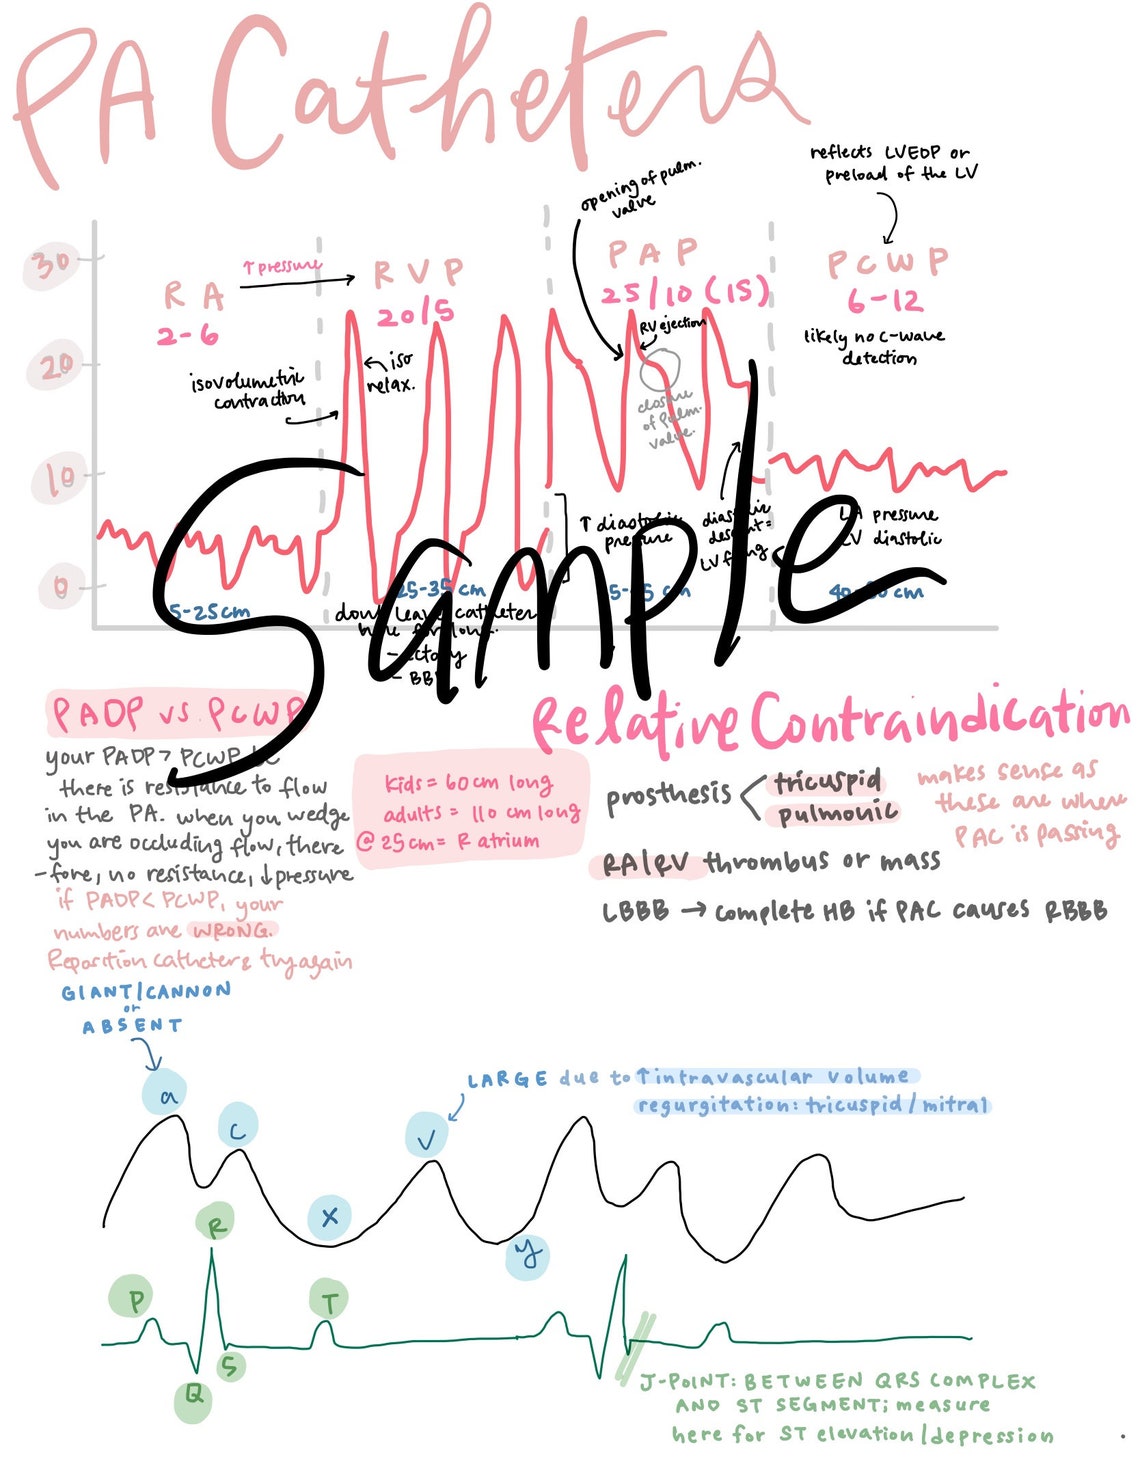 PA Catheters
reflects LVEDP or
preload of the LV
opening of pulm.
valve
30
20
10
0
RA
2-6
↑ pressure
RVP
20/5
PAP
25/10 (15)
PCWP
6-12
likely no c-wave
detection
isovolumetric
contraction
iso
relax.
RV ejection
closure
of pulm.
valve.
↑ diastolic
pressure
diastolic
descent =
LV
LA pressure
LV diastolic
5-25cm
25-35 cm
cm
40-50 cm
dont leave catheter
here for long.
- ectopy
- BBB
Sample
PADP vs. PCWP
your PADP > PCWP bc
there is resistance to flow
in the PA. when you wedge
you are occluding flow, there
-fore, no resistance, ↓pressure
if PADP < PCWP, your
numbers are WRONG.
Reposition catheter & try again
kids = 60cm long
adults = 110 cm long
@ 25cm = R atrium
Relative Contraindication
prosthesis < tricuspid
pulmonic
makes sense as
these are where
PAC is passing
RA/RV thrombus or mass
LBBB → complete HB if PAC causes RBBB
GIANT/CANNON
or
ABSENT
LARGE due to ↑intravascular volume
regurgitation: tricuspid/mitral
a
c
v
x
y
R
P
T
S
Q
J-POINT: BETWEEN QRS COMPLEX
AND ST SEGMENT; measure
here for ST elevation/depression